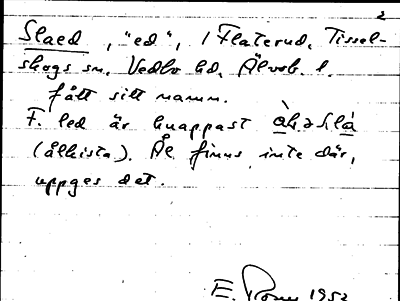 2
Slaed, "ed", i Flaterud, Tissel-
skogs sn, Vedbo hd, Älvsb. l.
fått sitt namn.
F. led är knappast
(ålkista). Ål finns inte där,
uppges det.
E. 1952